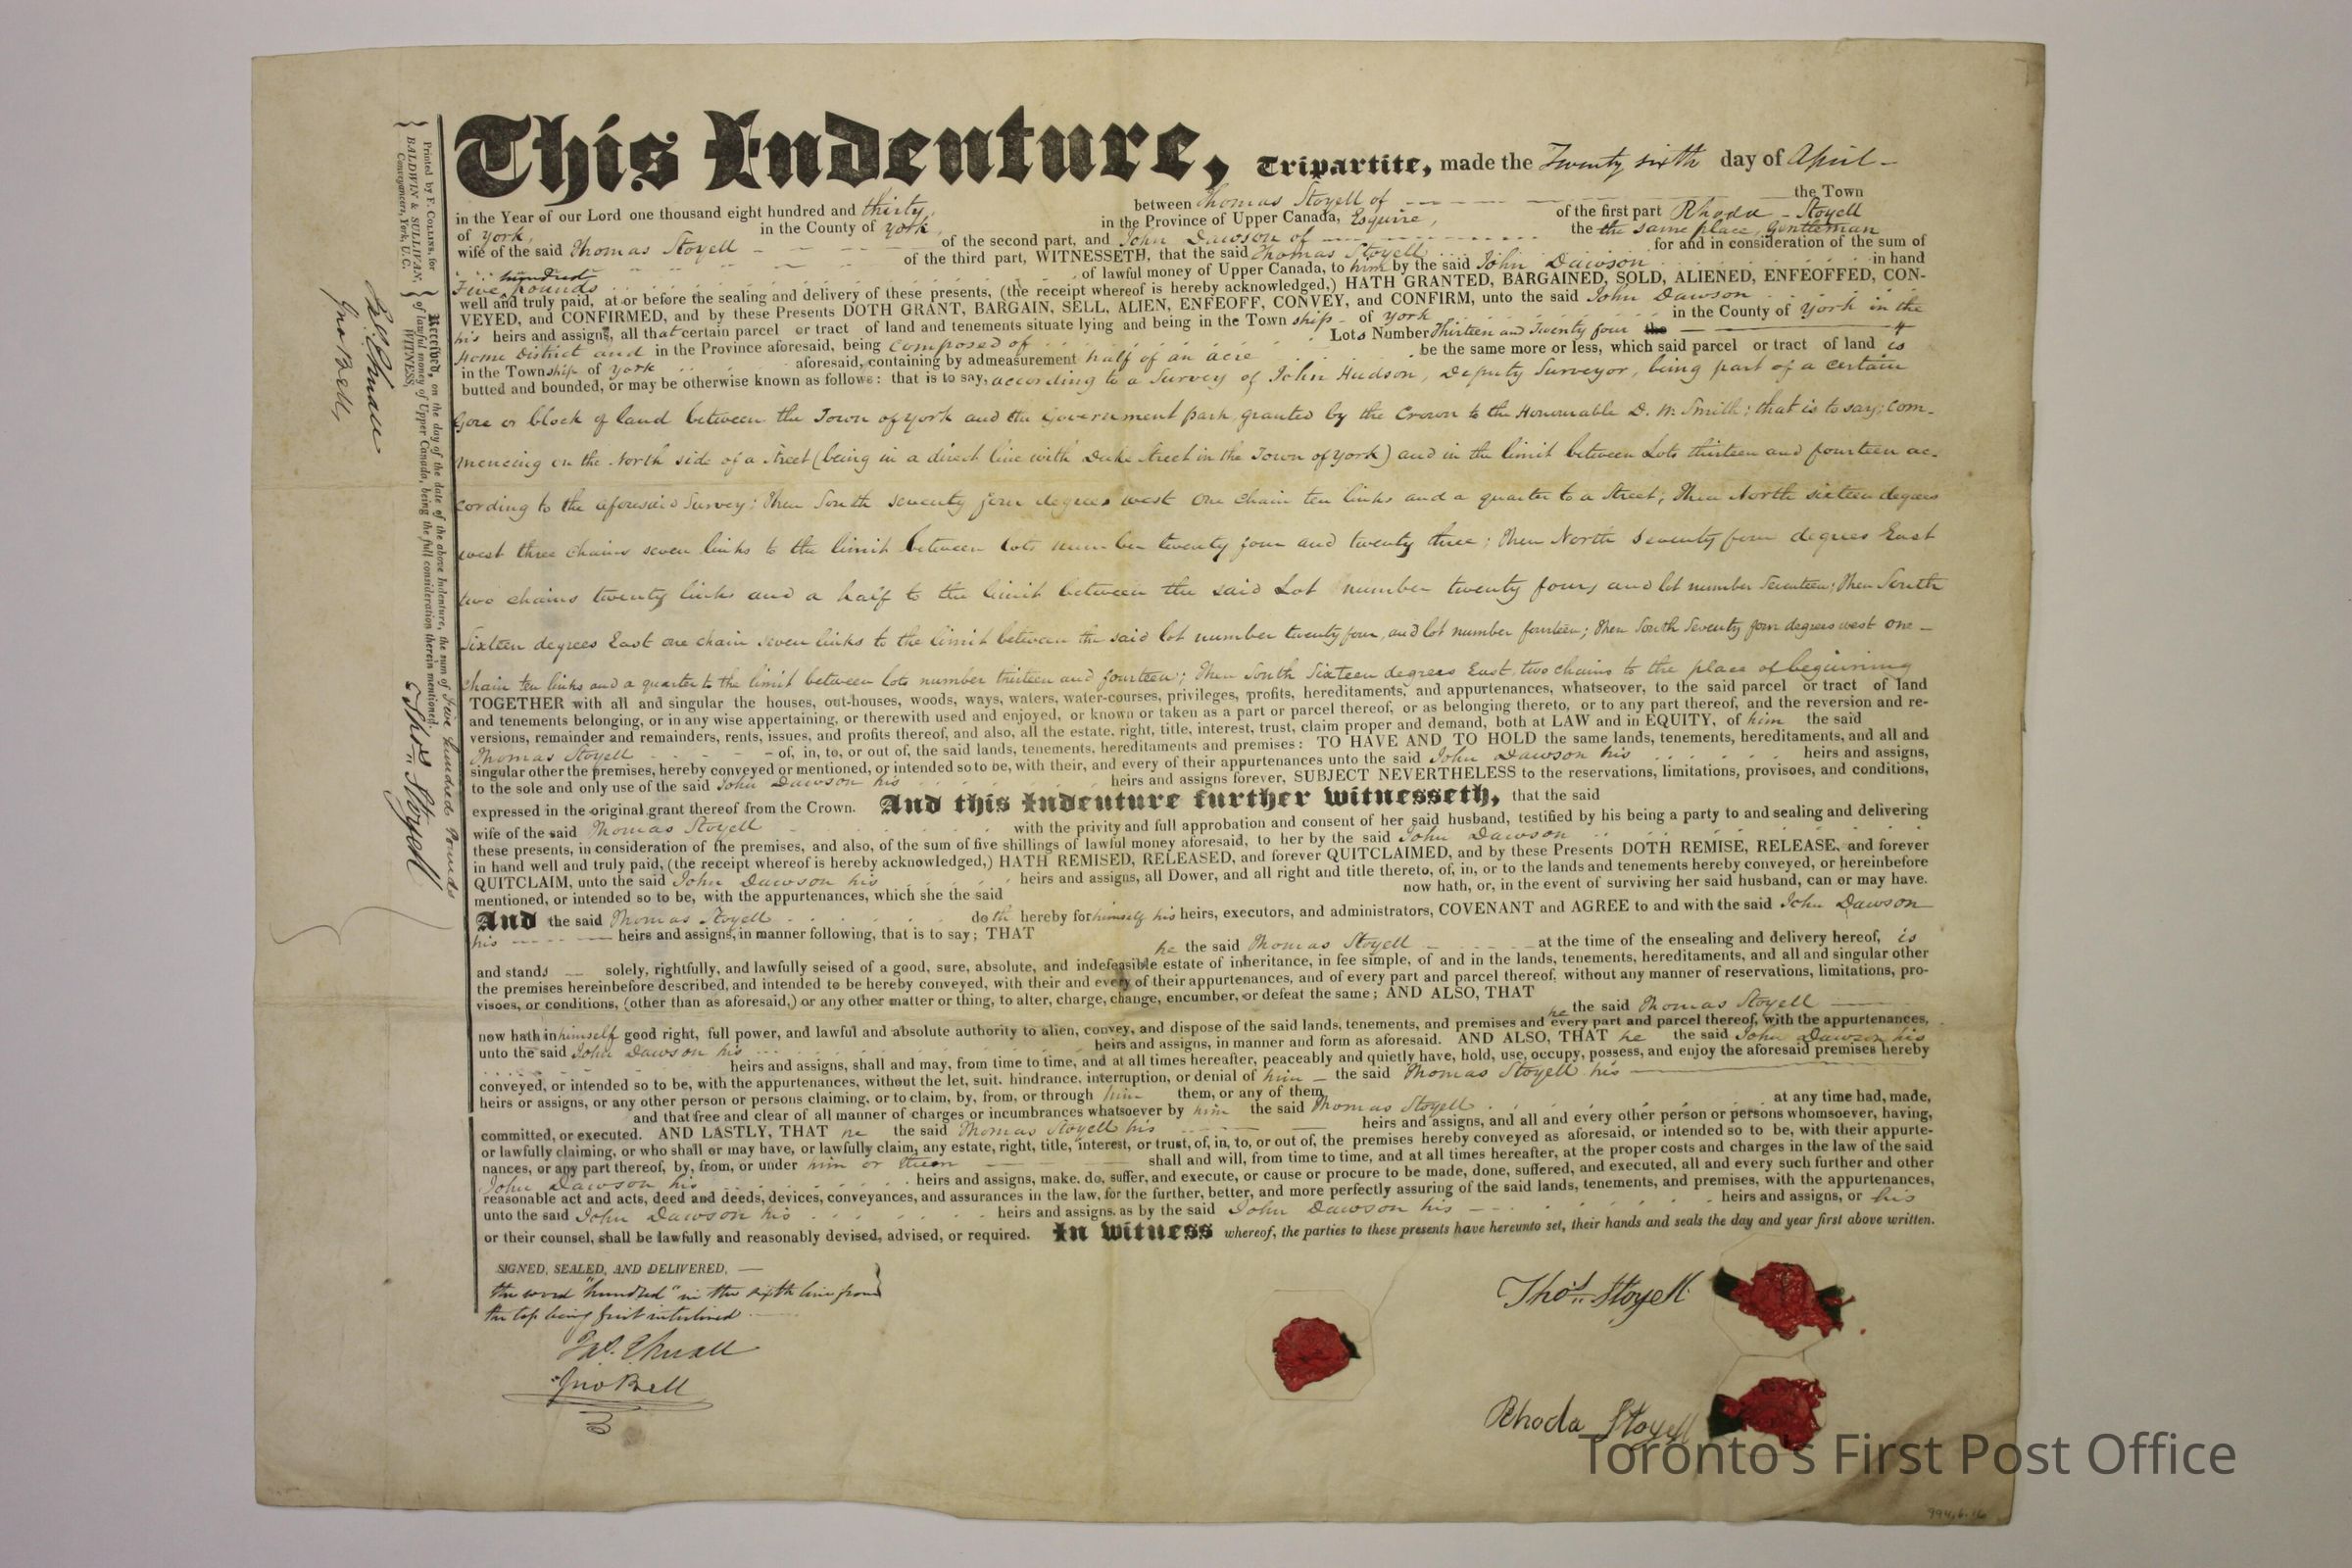 This Indenture, Tripartite, made the Twenty sixth day of April
in the Year of our Lord one thousand eight hundred and thirty, between Thomas Stoyell of the Town
of York, in the County of York, in the Province of Upper Canada, Esquire, of the first part Rhoda Stoyell
wife of the said Thomas Stoyell of the second part, and John Dawson of the the same place, Gentleman
of the third part, WITNESSETH, that the said Thomas Stoyell for and in consideration of the sum of
Five hundred pounds of lawful money of Upper Canada, to him by the said John Dawson in hand
well and truly paid, at or before the sealing and delivery of these presents, (the receipt whereof is hereby acknowledged,) HATH GRANTED, BARGAINED, SOLD, ALIENED, ENFEOFFED, CON-
VEYED, and CONFIRMED, and by these Presents DOTH GRANT, BARGAIN, SELL, ALIEN, ENFEOFF, CONVEY, and CONFIRM, unto the said John Dawson
his heirs and assigns, all that certain parcel or tract of land and tenements situate lying and being in the Town ship of York in the County of York in the
Home District and in the Province aforesaid, being composed of Lots Number Thirteen and Twenty four the
in the Township of York aforesaid, containing by admeasurement half of an acre be the same more or less, which said parcel or tract of land is
butted and bounded, or may be otherwise known as follows: that is to say, according to a Survey of John Hudson, Deputy Surveyor, being part of a certain
Gore or block of land between the Town of York and the Government Park, granted by the Crown to the Honourable D. W. Smith; that is to say; Com-
mencing on the North side of a street (being in a direct line with Duke street in the Town of York) and in the limit between Lots thirteen and fourteen ac-
cording to the aforesaid Survey; Then South seventy four degrees west One chain ten links and a quarter to a Street; Then North sixteen degrees
west three chains seven links to the limit between lots number twenty four and twenty three; Then North seventy four degrees East
two chains twenty links and a half to the limit between the said Lot number twenty four, and lot number Seventeen; Then South
Sixteen degrees East one chain seven links to the limit between the said lot number twenty four, and lot number fourteen; Then South Seventy four degrees west one
chain ten links and a quarter to the limit between lots number thirteen and fourteen; Then South Sixteen degrees East, two chains to the place of beginning
TOGETHER with all and singular the houses, out-houses, woods, ways, waters, water-courses, privileges, profits, hereditaments, and appurtenances, whatsoever, to the said parcel or tract of land
and tenements belonging, or in any wise appertaining, or therewith used and enjoyed, or known or taken as a part or parcel thereof, or as belonging thereto, or to any part thereof, and the reversion and re-
versions, remainder and remainders, rents, issues, and profits thereof, and also, all the estate, right, title, interest, trust, claim proper and demand, both at LAW and in EQUITY, of him the said
Thomas Stoyell of, in, to, or out of, the said lands, tenements, hereditaments and premises: TO HAVE AND TO HOLD the same lands, tenements, hereditaments, and all and
singular other the premises, hereby conveyed or mentioned, or intended so to be, with their, and every of their appurtenances unto the said John Dawson his heirs and assigns,
to the sole and only use of the said John Dawson his heirs and assigns forever, SUBJECT NEVERTHELESS to the reservations, limitations, provisoes, and conditions,
expressed in the original grant thereof from the Crown. And this Indenture further witnesseth, that the said
wife of the said Thomas Stoyell with the privity and full approbation and consent of her said husband, testified by his being a party to and sealing and delivering
these presents, in consideration of the premises, and also, of the sum of five shillings of lawful money aforesaid, to her by the said John Dawson
in hand well and truly paid, (the receipt whereof is hereby acknowledged,) HATH REMISED, RELEASED, and forever QUITCLAIMED, and by these Presents DOTH REMISE, RELEASE, and forever
QUITCLAIM, unto the said John Dawson his heirs and assigns, all Dower, and all right and title thereto, of, in, or to the lands and tenements hereby conveyed, or hereinbefore
mentioned, or intended so to be, with the appurtenances, which she the said now hath, or, in the event of surviving her said husband, can or may have.
And the said Thomas Stoyell doth hereby for himself his heirs, executors, and administrators, COVENANT and AGREE to and with the said John Dawson
his heirs and assigns, in manner following, that is to say; THAT he the said Thomas Stoyell at the time of the ensealing and delivery hereof, is
and stands solely, rightfully, and lawfully seised of a good, sure, absolute, and indefeasible estate of inheritance, in fee simple, of and in the lands, tenements, hereditaments, and all and singular other
the premises hereinbefore described, and intended to be hereby conveyed, with their and every of their appurtenances, and of every part and parcel thereof, without any manner of reservations, limitations, pro-
visoes, or conditions, (other than as aforesaid,) or any other matter or thing, to alter, charge, change, encumber, or defeat the same; AND ALSO, THAT he the said Thomas Stoyell
now hath in himself good right, full power, and lawful and absolute authority to alien, convey, and dispose of the said lands, tenements, and premises and every part and parcel thereof, with the appurtenances,
unto the said John Dawson his heirs and assigns, in manner and form as aforesaid. AND ALSO, THAT he the said John Dawson his
heirs and assigns, shall and may, from time to time, and at all times hereafter, peaceably and quietly have, hold, use, occupy, possess, and enjoy the aforesaid premises hereby
conveyed, or intended so to be, with the appurtenances, without the let, suit, hindrance, interruption, or denial of him the said Thomas Stoyell his
heirs or assigns, or any other person or persons claiming, or to claim, by, from, or through him them, or any of them
and that free and clear of all manner of charges or incumbrances whatsoever by him the said Thomas Stoyell at any time had, made,
committed, or executed. AND LASTLY, THAT he the said Thomas Stoyell his heirs and assigns, and all and every other person or persons whomsoever, having,
or lawfully claiming, or who shall or may have, or lawfully claim, any estate, right, title, interest, or trust, of, in, to, or out of, the premises hereby conveyed as aforesaid, or intended so to be, with their appurte-
nances, or any part thereof, by, from, or under him or them shall and will, from time to time, and at all times hereafter, at the proper costs and charges in the law of the said
John Dawson his heirs and assigns, make, do, suffer, and execute, or cause or procure to be made, done, suffered, and executed, all and every such further and other
reasonable act and acts, deed and deeds, devices, conveyances, and assurances in the law, for the further, better, and more perfectly assuring of the said lands, tenements, and premises, with the appurtenances,
unto the said John Dawson his heirs and assigns, as by the said John Dawson his heirs and assigns, or his
or their counsel, shall be lawfully and reasonably devised, advised, or required. In witness whereof, the parties to these presents have hereunto set, their hands and seals the day and year first above written.
SIGNED, SEALED, AND DELIVERED,
the word "hundred" in the sixth line from
the top being first interlined
Jno Bell
Thos. Stoyell
Rhoda Stoyell
Printed by F. COLLINS, for
BALDWIN & SULLIVAN,
Conveyancers, York, U. C.
Received, on the day of the date of the above Indenture, the sum of Five hundred Pounds
of lawful money of Upper Canada, being the full consideration therein mentioned.
WITNESS,
Thos. Stoyell
Jno Bell,
Toronto's First Post Office
994.6.16